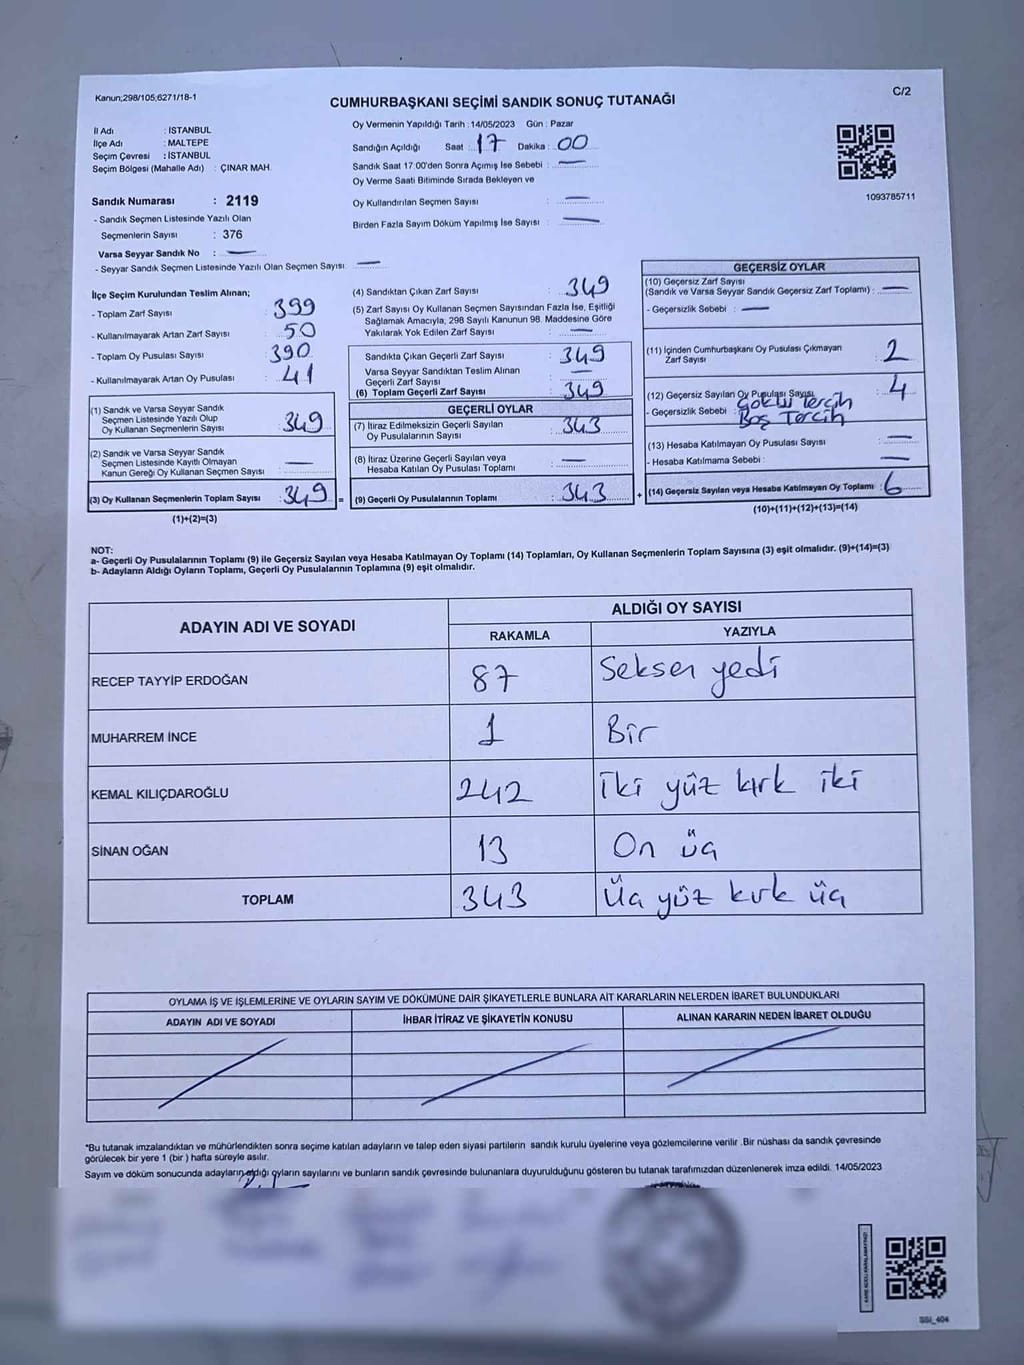 Kanun;298/105,6271/18-1
C/2
CUMHURBAŞKANI SEÇİMİ SANDIK SONUÇ TUTANAĞI
İl Adı : İSTANBUL
İlçe Adı : MALTEPE
Seçim Çevresi : İSTANBUL
Seçim Bölgesi (Mahalle Adı) : ÇINAR MAH.
Sandık Numarası : 2119
- Sandık Seçmen Listesinde Yazılı Olan
Seçmenlerin Sayısı : 376
Varsa Seyyar Sandık No : —
- Seyyar Sandık Seçmen Listesinde Yazılı Olan Seçmen Sayısı: —
Oy Vermenin Yapıldığı Tarih :14/05/2023 Gün : Pazar
Sandığın Açıldığı Saat : 17 Dakika : 00
Sandık Saat 17:00'den Sonra Açılmış İse Sebebi : —
Oy Verme Saati Bitiminde Sırada Bekleyen ve
Oy Kullandırılan Seçmen Sayısı : —
Birden Fazla Sayım Döküm Yapılmış İse Sayısı : —
1093785711
İlçe Seçim Kurulundan Teslim Alınan;
- Toplam Zarf Sayısı : 399
- Kullanılmayarak Artan Zarf Sayısı : 50
- Toplam Oy Pusulası Sayısı : 390
- Kullanılmayarak Artan Oy Pusulası : 41
(1) Sandık ve Varsa Seyyar Sandık
Seçmen Listesinde Yazılı Olup
Oy Kullanan Seçmenlerin Sayısı : 349
(2) Sandık ve Varsa Seyyar Sandık
Seçmen Listesinde Kayıtlı Olmayan
Kanun Gereği Oy Kullanan Seçmen Sayısı : —
(3) Oy Kullanan Seçmenlerin Toplam Sayısı : 349 =
(1)+(2)=(3)
(4) Sandıktan Çıkan Zarf Sayısı : 349
(5) Zarf Sayısı Oy Kullanan Seçmen Sayısından Fazla İse, Eşitliği
Sağlamak Amacıyla; 298 Sayılı Kanunun 98. Maddesine Göre
Yakılarak Yok Edilen Zarf Sayısı : —
Sandıkta Çıkan Geçerli Zarf Sayısı : 349
Varsa Seyyar Sandıktan Teslim Alınan
Geçerli Zarf Sayısı : —
(6) Toplam Geçerli Zarf Sayısı : 349
GEÇERLİ OYLAR
(7) İtiraz Edilmeksizin Geçerli Sayılan
Oy Pusulalarının Sayısı : 343
(8) İtiraz Üzerine Geçerli Sayılan veya
Hesaba Katılan Oy Pusulası Toplamı : —
(9) Geçerli Oy Pusulalarının Toplamı : 343 +
GEÇERSİZ OYLAR
(10) Geçersiz Zarf Sayısı
(Sandık ve Varsa Seyyar Sandık Geçersiz Zarf Toplamı) : —
- Geçersizlik Sebebi : —
(11) İçinden Cumhurbaşkanı Oy Pusulası Çıkmayan
Zarf Sayısı : 2
(12) Geçersiz Sayılan Oy Pusulası Sayısı : 4
- Geçersizlik Sebebi : Çoklu Tercih
Boş Tercih
(13) Hesaba Katılmayan Oy Pusulası Sayısı : —
- Hesaba Katılmama Sebebi : —
(14) Geçersiz Sayılan veya Hesaba Katılmayan Oy Toplamı : 6
(10)+(11)+(12)+(13)=(14)
NOT:
a- Geçerli Oy Pusulalarının Toplamı (9) ile Geçersiz Sayılan veya Hesaba Katılmayan Oy Toplamı (14) Toplamları, Oy Kullanan Seçmenlerin Toplam Sayısına (3) eşit olmalıdır. (9)+(14)=(3)
b- Adayların Aldığı Oyların Toplamı, Geçerli Oy Pusulalarının Toplamına (9) eşit olmalıdır.
ADAYIN ADI VE SOYADI
ALDIĞI OY SAYISI
RAKAMLA YAZIYLA
RECEP TAYYİP ERDOĞAN 87 Seksen yedi
MUHARREM İNCE 1 Bir
KEMAL KILIÇDAROĞLU 242 İki yüz kırk iki
SİNAN OĞAN 13 On üç
TOPLAM 343 Üç yüz kırk üç
OYLAMA İŞ VE İŞLEMLERİNE VE OYLARIN SAYIM VE DÖKÜMÜNE DAİR ŞİKAYETLERLE BUNLARA AİT KARARLARIN NELERDEN İBARET BULUNDUKLARI
ADAYIN ADI VE SOYADI İHBAR İTİRAZ VE ŞİKAYETİN KONUSU ALINAN KARARIN NEDEN İBARET OLDUĞU
*Bu tutanak imzalandıktan ve mühürlendikten sonra seçime katılan adayların ve talep eden siyasi partilerin sandık kurulu üyelerine veya gözlemcilerine verilir .Bir nüshası da sandık çevresinde
görülecek bir yere 1 (bir ) hafta süreyle asılır.
Sayım ve döküm sonucunda adayların aldığı oyların sayılarını ve bunların sandık çevresinde bulunanlara duyurulduğunu gösteren bu tutanak tarafımızdan düzenlenerek imza edildi. 14/05/2023
SSI_404